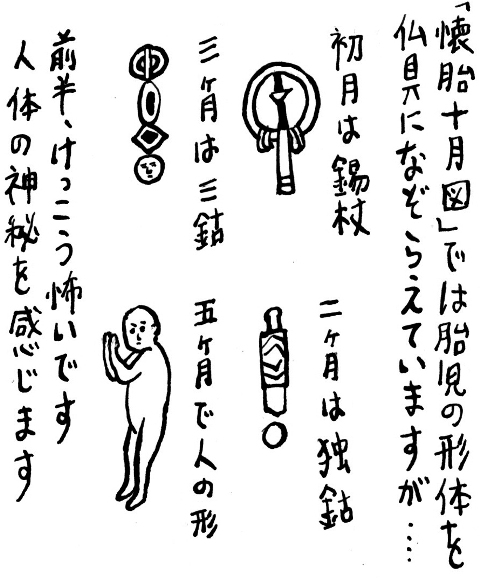 「懐胎十月図」では胎児の形体を
仏具になぞらえていますが……
初月は錫杖
二ヶ月は独鈷
三ヶ月は三鈷
五ヶ月で人の形
前半、けっこう怖いです
人体の神秘を感じます